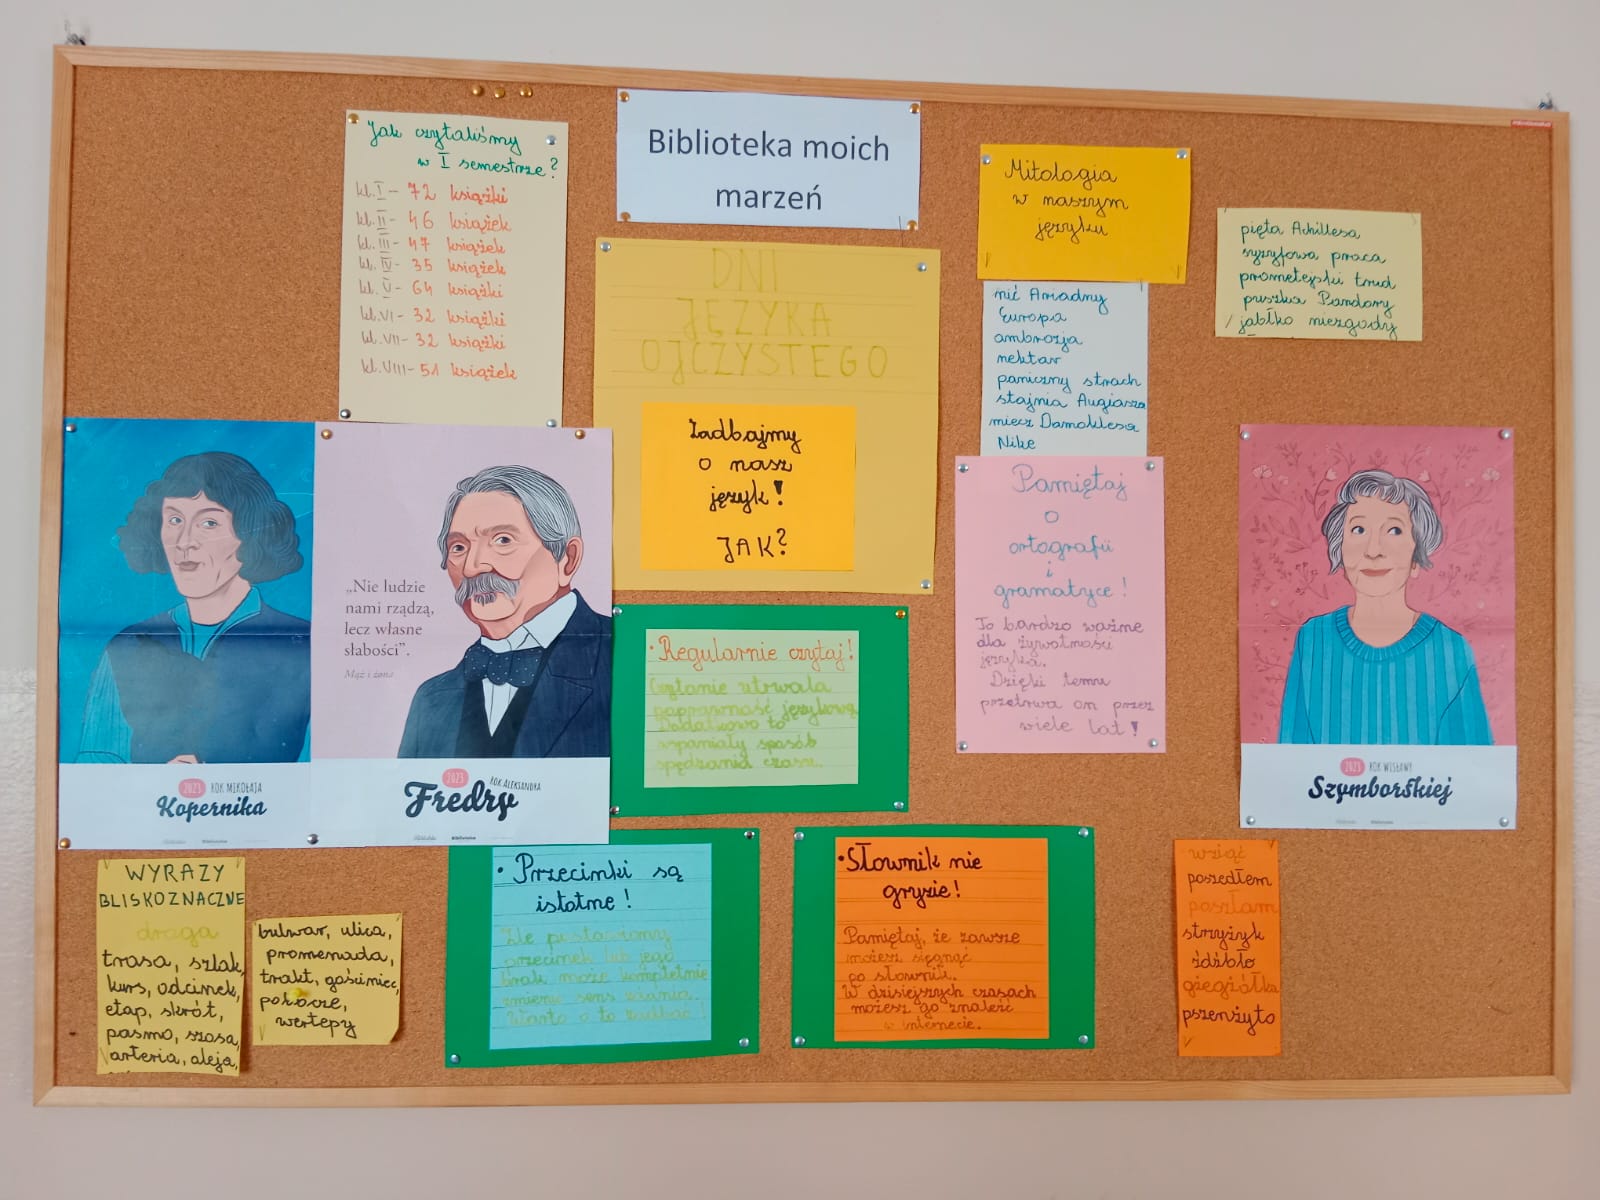 Jak czytaliśmy
w I semestrze?
kl. I - 72 książki
kl. II - 46 książek
kl. III - 47 książek
kl. IV - 35 książek
kl. V - 64 książki
kl. VI - 32 książki
kl. VII - 32 książki
kl. VIII - 51 książek
Biblioteka moich
marzeń
DNI
JĘZYKA
OJCZYSTEGO
Zadbajmy
o nasz
język!
JAK?
Mitologia
w naszym
języku
nić Ariadny
Europa
ambrozja
nektar
paniczny strach
stajnia Augiasza
miecz Damoklesa
Nike
pięta Achillesa
syzyfowa praca
prometejski trud
puszka Pandory
jabłko niezgody
2023 ROK MIKOŁAJA
Kopernika
„Nie ludzie
nami rządzą,
lecz własne
słabości”.
Mąż i żona
2023 ROK ALEKSANDRA
Fredry
• Regularnie czytaj!
Czytanie utrwala
poprawność językową.
Dodatkowo to
wspaniały sposób
spędzania czasu.
Pamiętaj
o
ortografii
i
gramatyce!
To bardzo ważne
dla żywotności
języka.
Dzięki temu
przetrwa on przez
wiele lat!
2023 ROK WISŁAWY
Szymborskiej
WYRAZY
BLISKOZNACZNE
droga
trasa, szlak,
kurs, odcinek,
etap, skrót,
pasmo, szosa,
arteria, aleja,
bulwar, ulica,
promenada,
trakt, gościniec,
pobocze,
wertepy
• Przecinki są
istotne!
Źle postawiony
przecinek lub jego
brak może kompletnie
zmienić sens zdania.
Warto o to zadbać!
• Słownik nie
gryzie!
Pamiętaj, że zawsze
możesz sięgnąć
po słownik.
W dzisiejszych czasach
możesz go znaleźć
w internecie.
wziąć
poszedłem
poszłam
strzyżyk
źdźbło
gżegżółka
pszenżyto